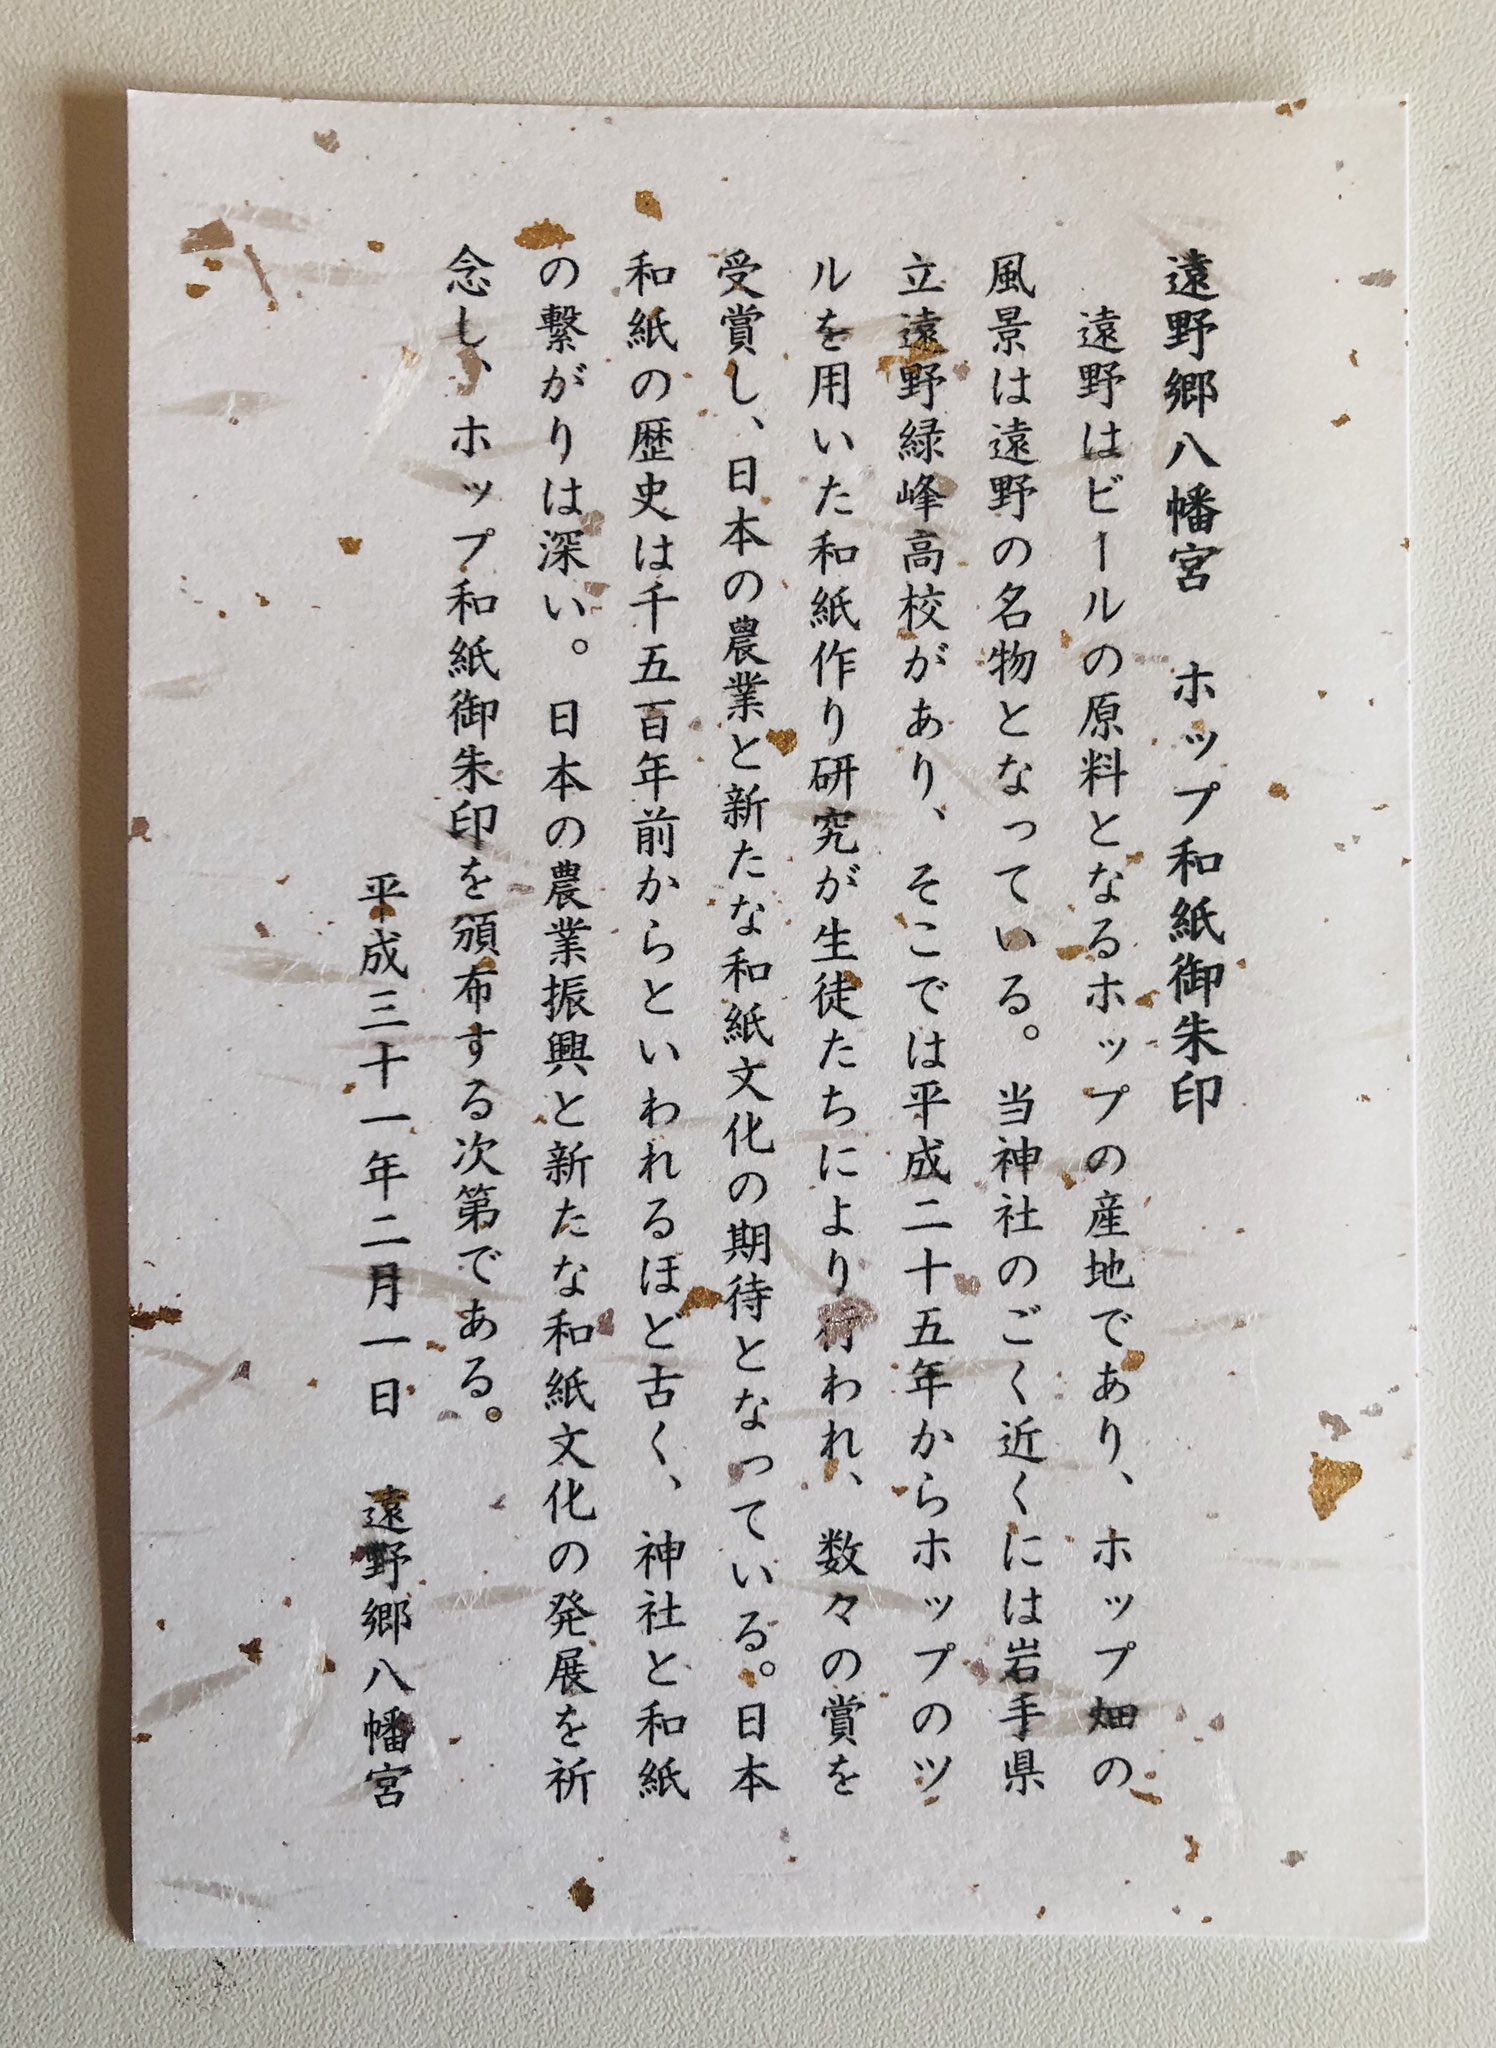 遠野郷八幡宮　ホップ和紙御朱印
　遠野はビールの原料となるホップの産地であり、ホップ畑の
風景は遠野の名物となっている。当神社のごく近くには岩手県
立遠野緑峰高校があり、そこでは平成二十五年からホップのツ
ルを用いた和紙作り研究が生徒たちにより行われ、数々の賞を
受賞し、日本の農業と新たな和紙文化の期待となっている。日本
和紙の歴史は千五百年前からといわれるほど古く、神社と和紙
の繋がりは深い。日本の農業振興と新たな和紙文化の発展を祈
念し、ホップ和紙御朱印を頒布する次第である。
平成三十一年二月一日　遠野郷八幡宮